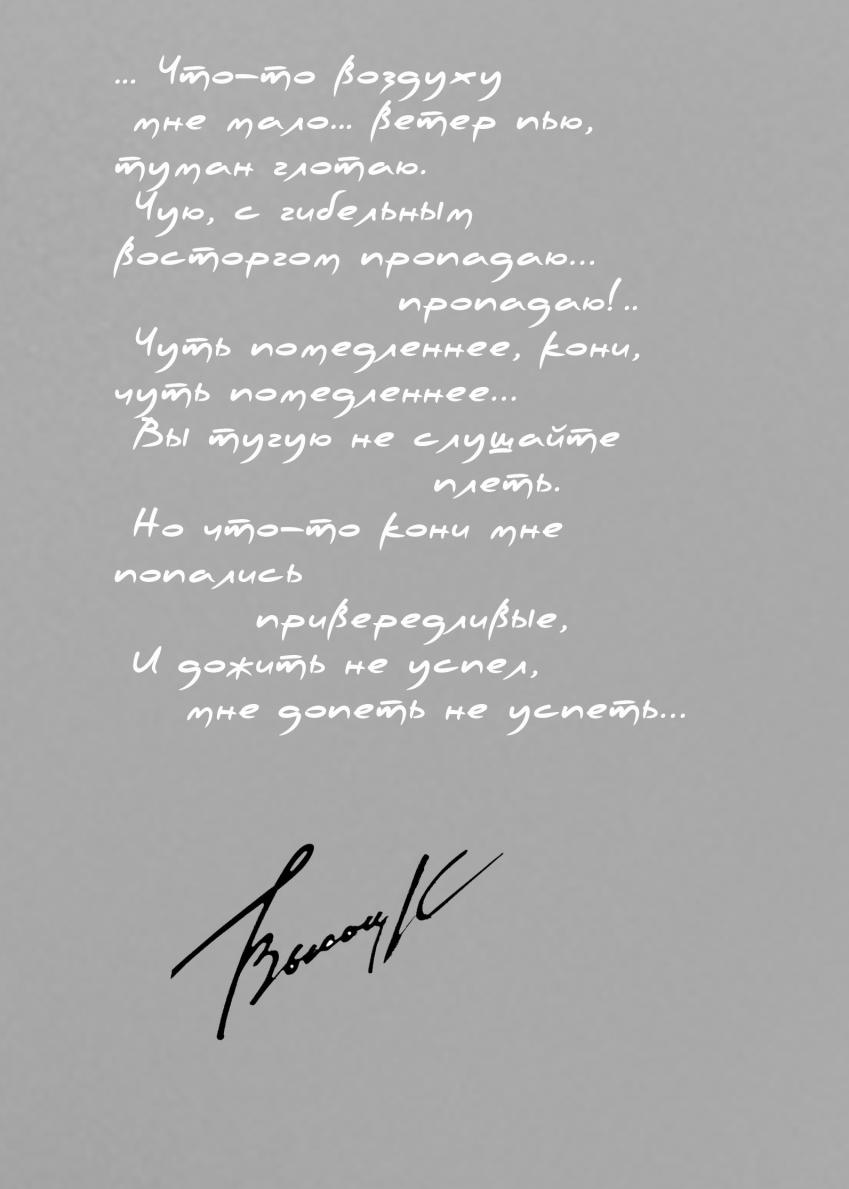 ... Что-то воздуху
мне мало... ветер пью,
туман глотаю.
Чую, с гибельным
восторгом пропадаю...
пропадаю!..
Чуть помедленнее, кони,
чуть помедленнее...
Вы тугую не слушайте
плеть.
Но что-то кони мне
попались
привередливые,
И дожить не успел,
мне допеть не успеть...